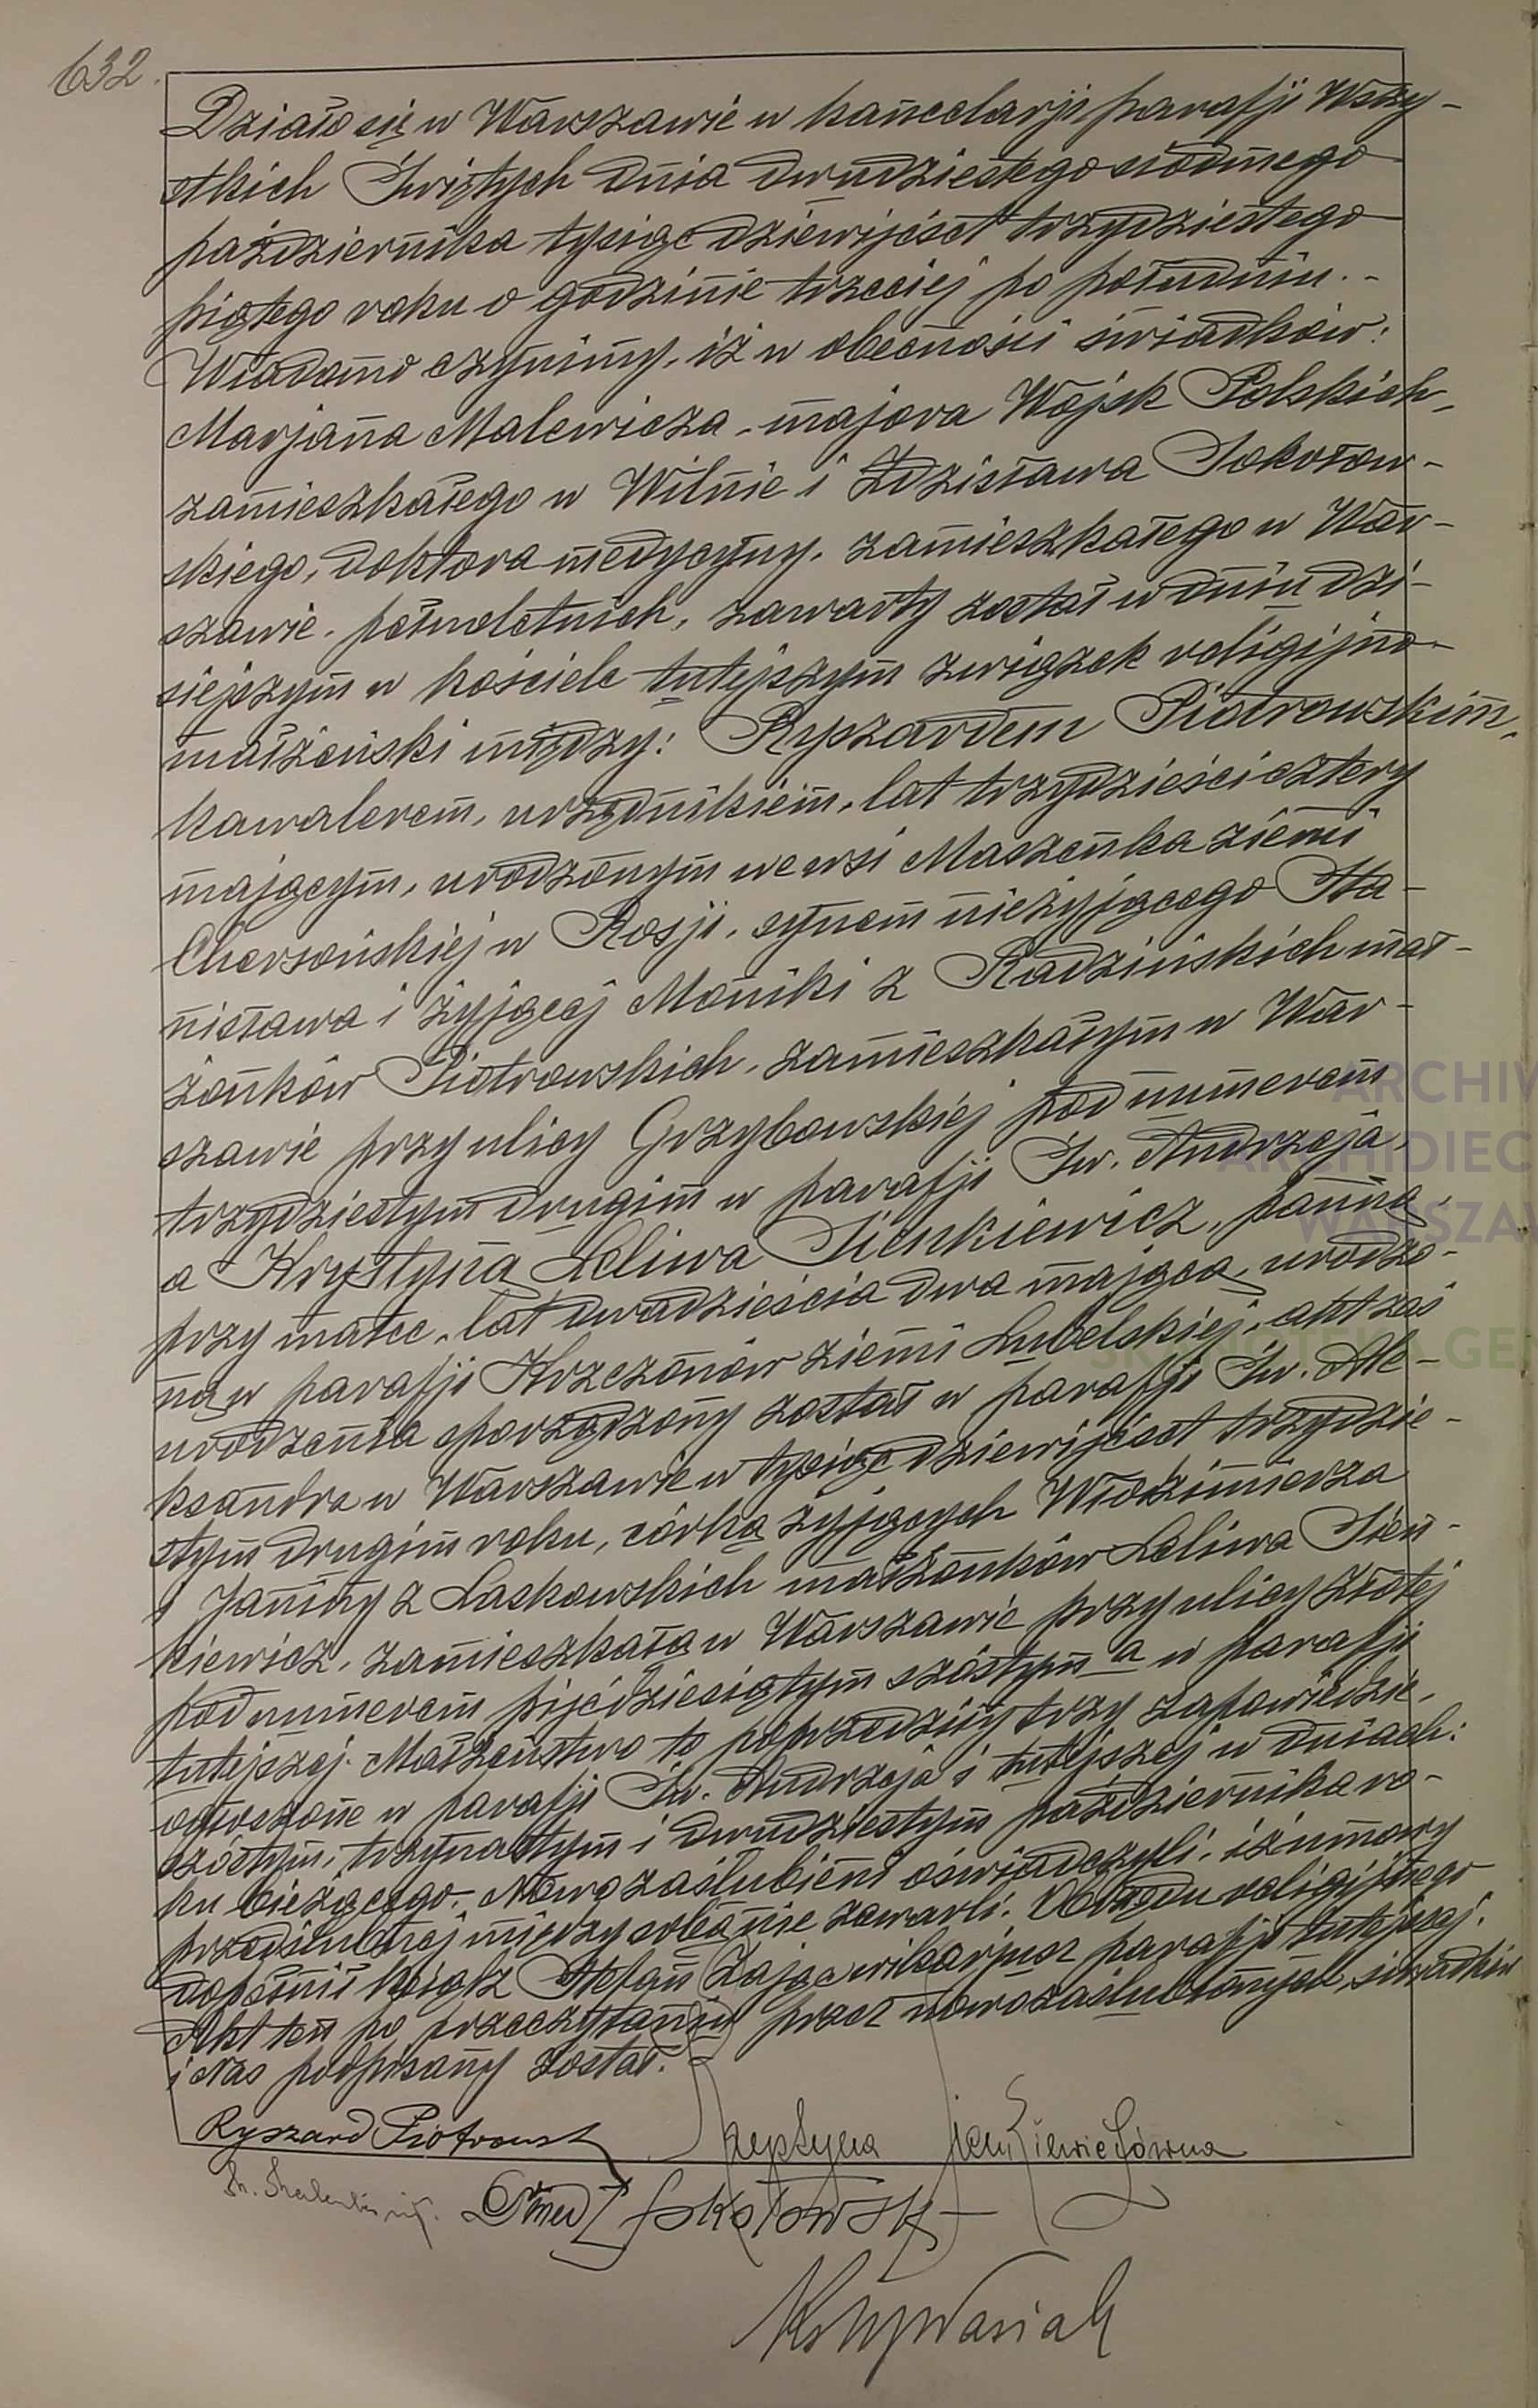 632.
Działo się w Warszawie w kancelarji parafji Wszy-
stkich Świętych dnia dwudziestego siódmego
października tysiąc dziewięćset trzydziestego
piątego roku o godzinie trzeciej po południu.-
Wiadomo czynimy, iż w obecności świadków:
Marjana Malewicza, majora Wojsk Polskich,
zamieszkałego w Wilnie i Zdzisława Sokołow-
skiego, doktora medycyny, zamieszkałego w War-
szawie, pełnoletnich, zawarty został w dniu dzi-
siejszym w kościele tutejszym związek religijno-
małżeński między: Ryszardem Piotrowskim,
kawalerem, urzędnikiem, lat trzydzieści cztery
mającym, urodzonym we wsi Maszenka ziemi
Chersońskiej w Rosji, synem nieżyjącego Sta-
nisława i żyjącej Moniki z Radzińskich mał-
żonków Piotrowskich, zamieszkałym w War-
szawie przy ulicy Grzybowskiej pod numerem
trzydziestym drugim w parafji Św. Andrzeja,
a Krystyną Leliwa Sienkiewicz, panną
przy matce, lat dwadzieścia dwa mającą, urodzo-
ną w parafji Krzczonów ziemi Lubelskiej, akt zaś
urodzenia sporządzony został w parafji Św. Ale-
ksandra w Warszawie w tysiąc dziewięćset trzydzie-
stym drugim roku, córką żyjących Włodzimierza
i Janiny z Laskowskich małżonków Leliwa Sien-
kiewicz, zamieszkałą w Warszawie przy ulicy Złotej
pod numerem pięćdziesiątym szóstym a w parafji
tutejszej. Małżeństwo to poprzedziły trzy zapowiedzie,
ogłoszone w parafji Św. Andrzeja i tutejszej w dniach:
szóstym, trzynastym i dwudziestym października ro-
ku bieżącego. Nowozaślubieni oświadczyli, iż umowy
przedślubnej między sobą nie zawarli. Obrzędu religijnego
dopełnił ksiądz Stefan Zając wikarjusz parafji tutejszej.
Akt ten po przeczytaniu przez nowozaślubionych, świadków
i Nas podpisany został.
Ryszard Piotrowski Krystyna Sienkiewiczówna
Dr med Z Sokołowski
Ks Wysiak
ARCHIW
ARCHIDIEC
WARSZA
SKANOTEKA GE